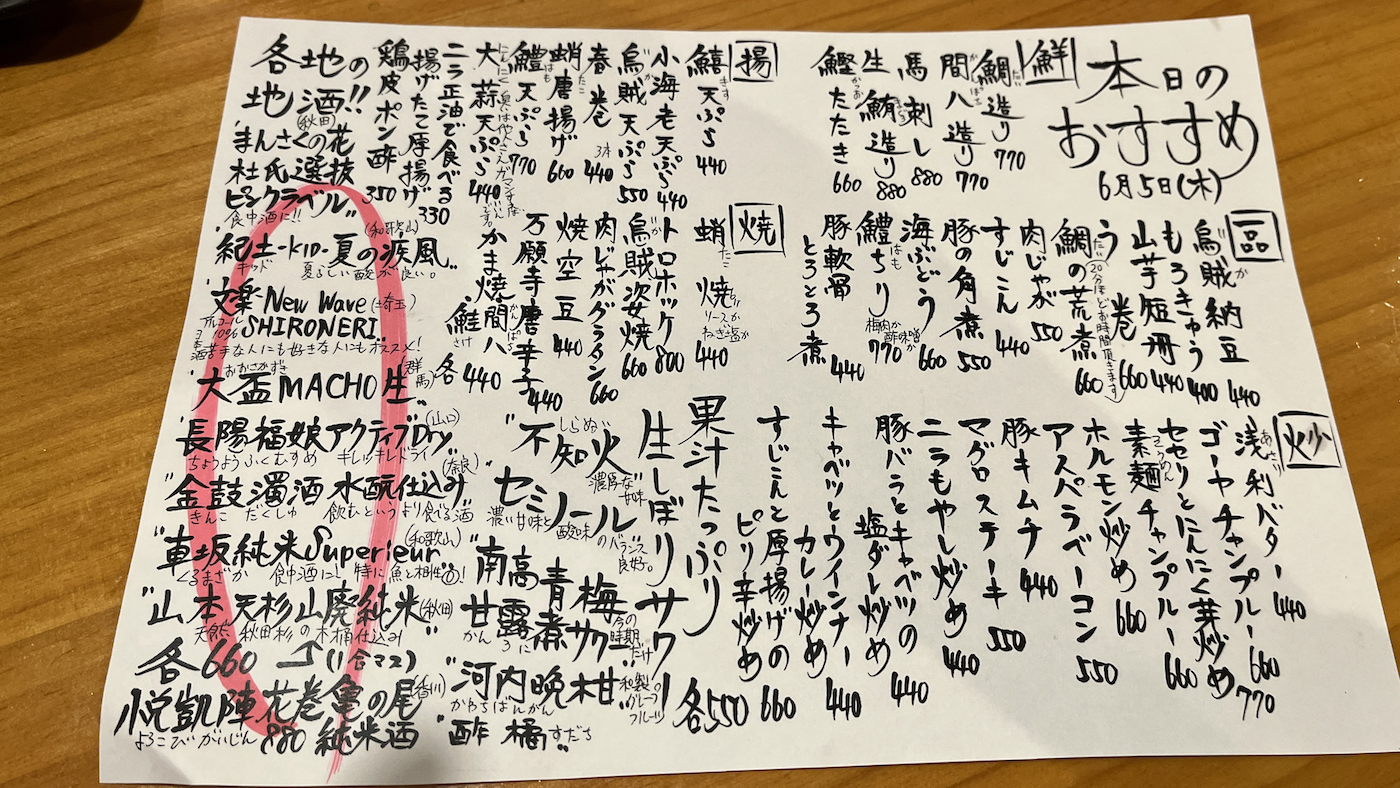 本日の
おすすめ
6月5日(木)
鮮
鯛造り 770
間八造り 770
馬刺し 880
生鮪造り 880
鰹たたき 660
揚
鱚天ぷら 440
小海老天ぷら 440
烏賊天ぷら 550
春巻 3本 440
蛸唐揚げ 660
鱧天ぷら 770
大蒜天ぷら 440
ニラ正油で食べる
揚げたて厚揚げ 330
鶏皮ポン酢 350
一品
烏賊納豆 440
もろきゅう 400
山芋短冊 440
う巻 660
鯛の荒煮 660
(20分ほどお時間頂きます)
肉じゃが 550
すじこん 440
豚の角煮 550
海ぶどう 660
鱧ちり 梅肉か酢味噌か 770
豚軟骨
とろとろ煮 440
焼
蛸焼 ソースか ねぎ塩か 440
トロホッケ 800
烏賊次女焼 660
肉じゃがグラタン 660
焼空豆 440
万願寺唐辛子 440
かま焼 間八 鮭 各440
炒
浅利バター 440
ゴーヤチャンプルー 660
セセリとにんにく芽炒め 770
素麺チャンプルー 660
ホルモン炒め 660
アスパラベーコン 550
豚キムチ 440
マグロステーキ 550
ニラもやし炒め 440
豚バラとキャベツの
塩ダレ炒め 440
キャベツとウインナー
カレー炒め 440
すじこんと厚揚げの
ピリ辛炒め 660
果汁たっぷり
生しぼりサワー 各550
"不知火" しらぬい 濃厚な甘味
"セミノール" 濃い甘味と酸味のバランス良好。
"南高青梅
甘露煮サワー" かんろに 今の時期だけ
"河内晩柑" かわちばんかん 和製グレープフルーツ
"酢橘" すだち
各地の
地酒!!
(秋田)
"まんさくの花
杜氏選抜
ピンクラベル"
食中酒に!!
(和歌山)
"紀土-KID-夏の疾風"
キッド 夏らしい酸が良い。
"文楽 New Wave (埼玉)
SHIRONERI"
アルコール10%
日本酒苦手な人にも好きな人にもオススメ!
おおさかずき
"大盃MACHO生" (群馬)
"長陽福娘アクティブDry" (山口)
ちょうようふくむすめ キレッキレドライ
"金鼓濁酒 水酛仕込み" (奈良)
きんこ だくしゅ 飲むというより食べる酒
"車坂純米Superieur" (和歌山)
くるまざか 食中酒に!特に魚と相性◎!
"山本天杉山廃純米" (秋田)
天然秋田杉の木桶仕込み
各660 (1合マス)
悦凱陣花巻亀の尾 (香川)
よろこびがいじん 880 純米酒